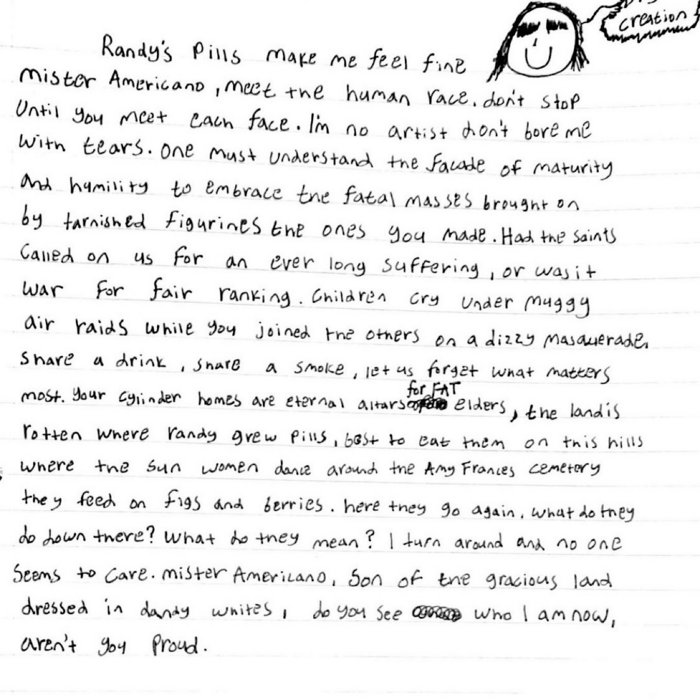 creation
Randy's Pills make me feel fine
mister Americano, meet the human race. don't stop
Until you meet each face. I'm no artist don't bore me
With tears. one must understand the facade of maturity
and humility to embrace the fatal masses brought on
by tarnished figurines the ones you made. Had the saints
Called on us for an ever long suffering, or was it
War for fair ranking. Children cry under muggy
air raids while you joined the others on a dizzy masquerade.
Share a drink, share a smoke, let us forget what matters
for FAT
most. Your cylinder homes are eternal altars elders, the land is
rotten where randy grew pills, best to eat them on this hills
where the sun women dance around the Amy Frances cemetery
they feed on figs and berries. here they go again. what do they
do down there? What do they mean? I turn around and no one
Seems to care. mister Americano, son of the gracious land
dressed in dandy whites, do you see who I am now,
aren't you proud.